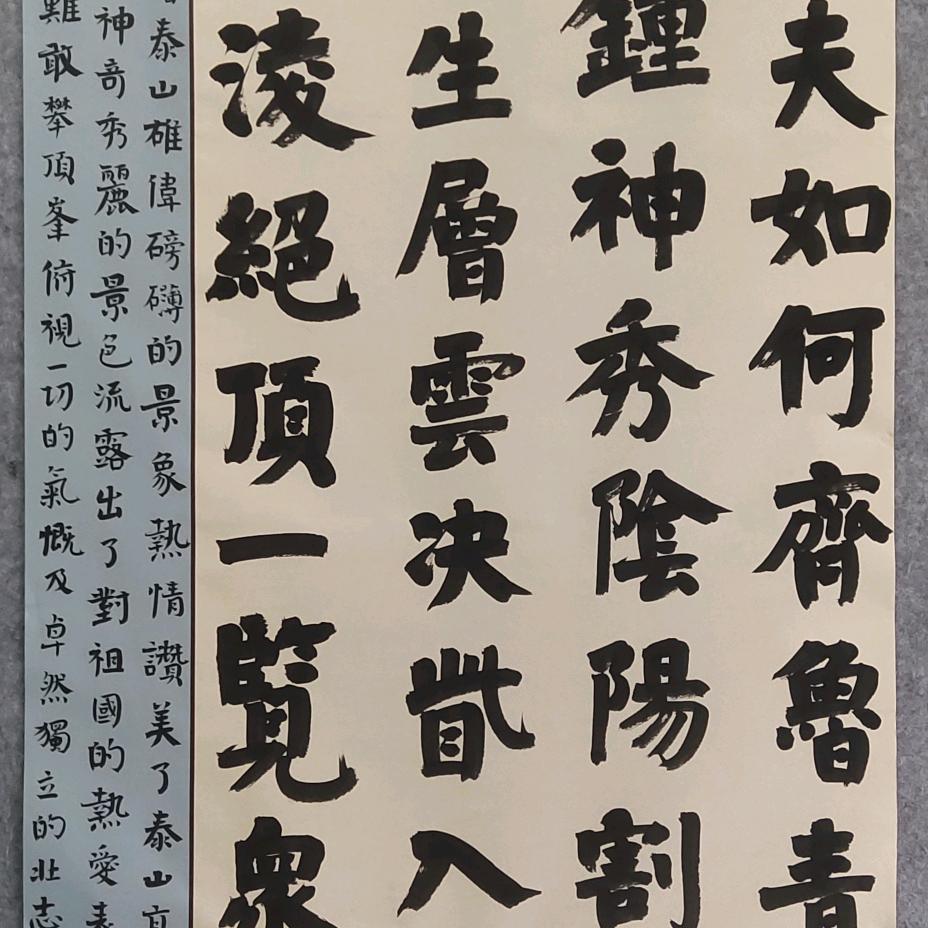 夫如何齊魯青
鍾神秀陰陽割
生層雲決眥入
淩絕頂一覽衆
泰山雄偉磅礴的景象熱情讚美了泰山
神奇秀麗的景色流露出了對祖國的熱愛表
難敢攀頂峯俯視一切的氣慨及卓然獨立的壯志